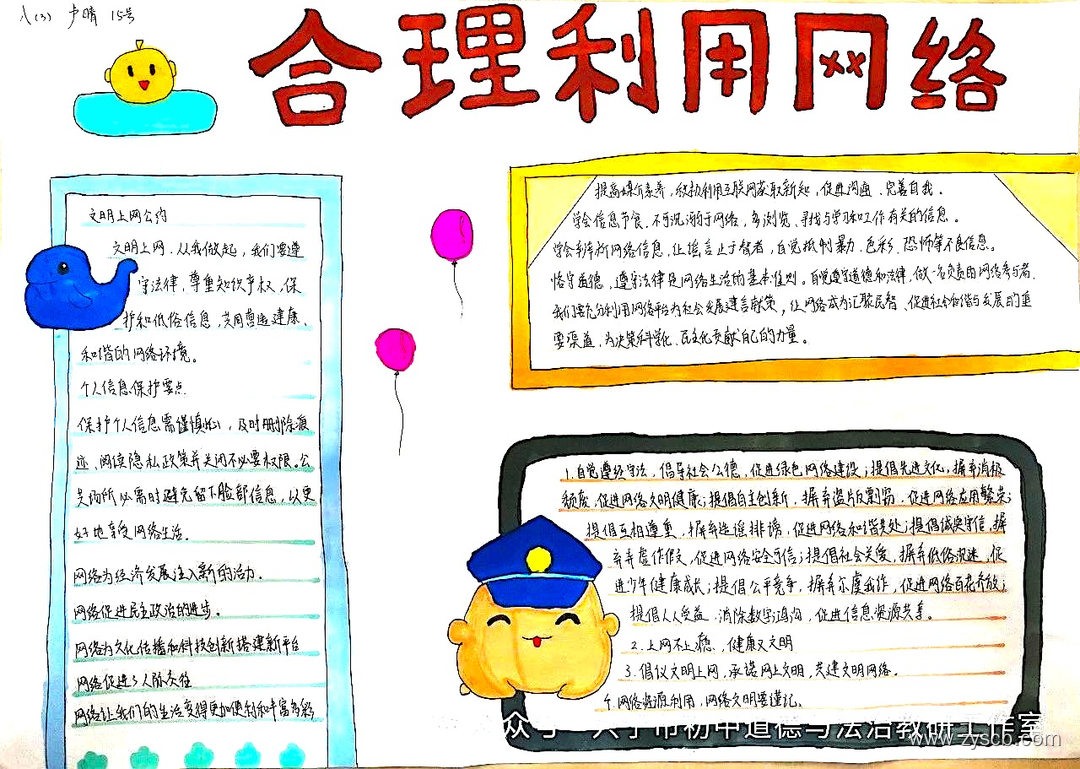 八(3) 卢晴 15号
合理利用网络
文明上网公约
文明上网，从我做起，我们要遵
守法律，尊重知识产权，保
护和低俗信息，共同营造健康、
和谐的网络环境。
个人信息保护要点
保护个人信息需谨慎，及时删除痕
迹、阅读隐私政策并关闭不必要权限。公
共场所必需时避免留下脸部信息，以更
好地享受网络生活。
网络为经济发展注入新的活力．
网络促进民主政治的进步。
网络为文化传播和科技创新搭建新平台
网络促进了人际交往
网络让我们的生活变得更加便利和丰富多彩
提高媒介素养，积极利用互联网获取新知、促进沟通、完善自我。
学会信息节食，不可沉溺于网络，多浏览、寻找与学习和工作有关的信息。
学会辨析网络信息，让谣言止于智者，自觉抵制暴力、色彩、恐怖等不良信息。
恪守道德，遵守法律是网络生活的基本准则。自觉遵守道德和法律，做一名负责的网络参与者．
我们要充分利用网络平台为社会发展建言献策，让网络成为汇聚民智、促进社会和谐与发展的重
要渠道，为决策科学化、民主化贡献自己的力量。
1.自觉遵纪守法，倡导社会公德，促进绿色网络建设；提倡先进文化，摒弃消极
颓废，促进网络文明健康；提倡自主创新，摒弃盗版剽窃，促进网络应用繁荣；
提倡互相尊重，摒弃造谣排谤，促进网络和谐共处；提倡诚实守信，摒
弃弄虚作假，促进网络安全可信；提倡社会关爱，摒弃低俗沉迷，促
进少年健康成长；提倡公平竞争，摒弃尔虞我诈，促进网络百花齐放；
提倡人人受益，消除数字鸿沟，促进信息资源共享。
2.上网不上瘾，健康又文明
3.倡议文明上网，承诺网上文明，共建文明网络。
4.网络资源利用，网络文明要谨记。
众号 兴宁市初中道德与法治教研工作室
www.zyscb.com